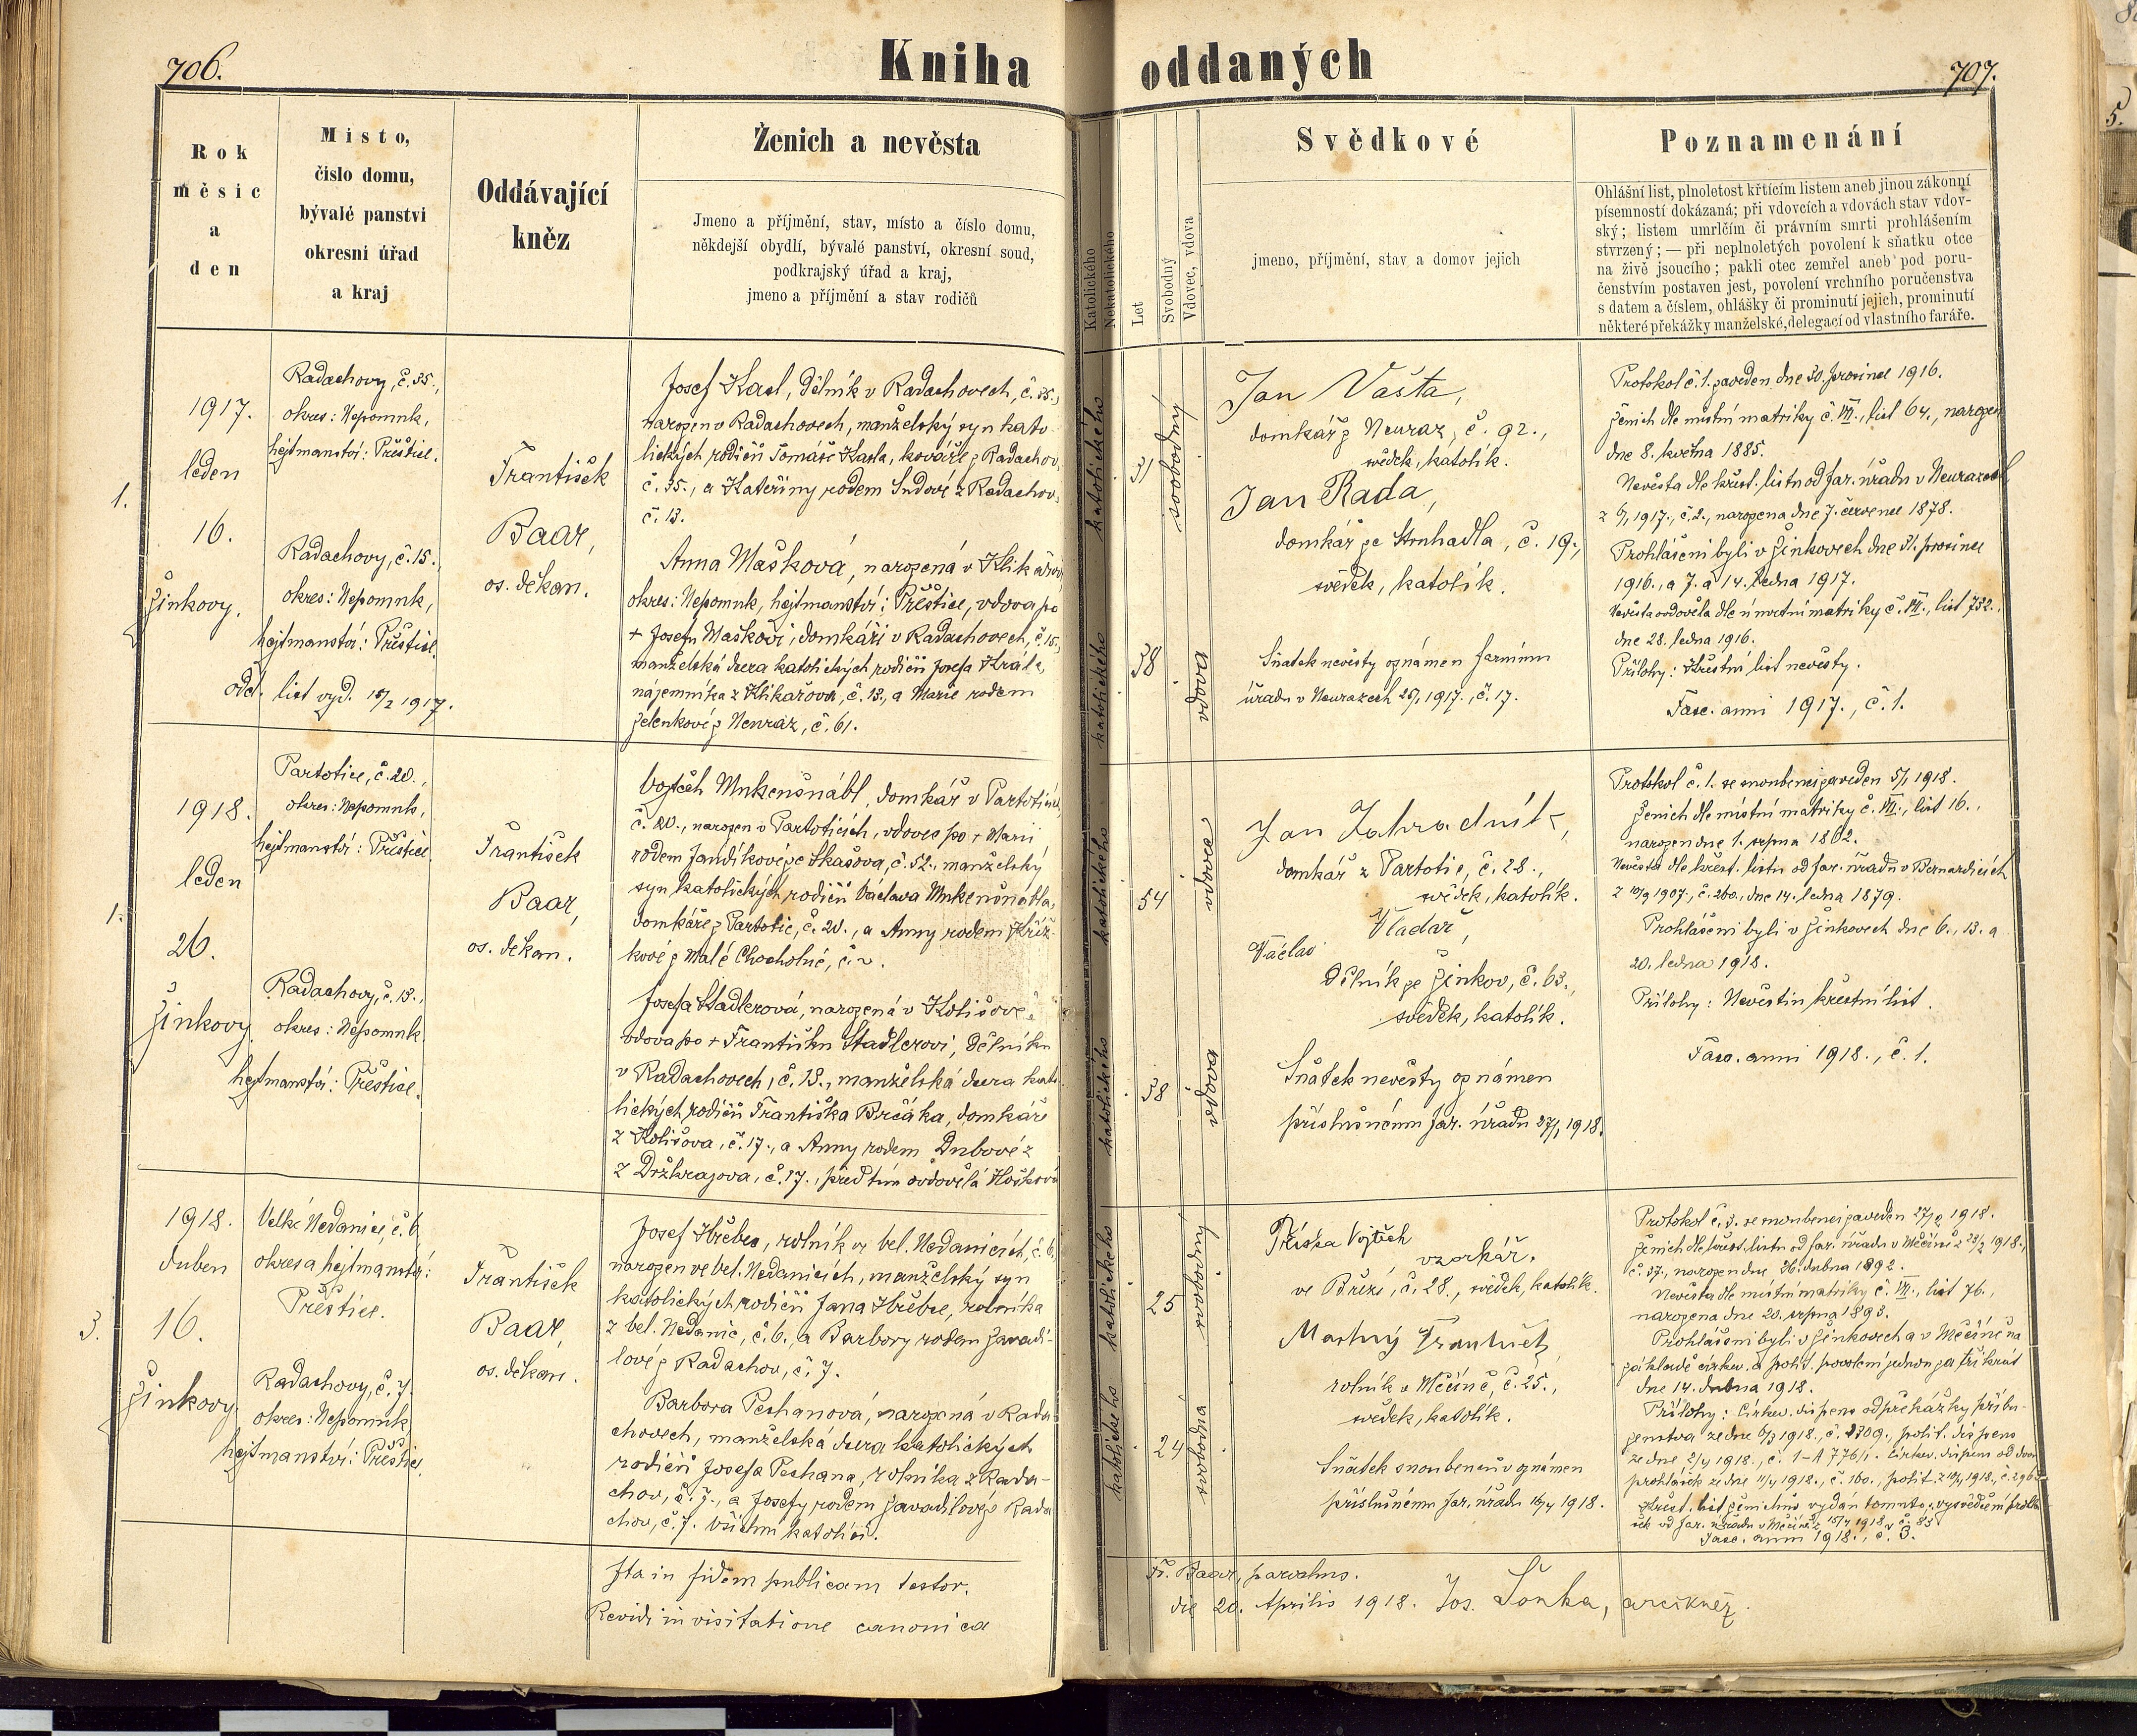 706.
Kniha oddaných
707.
Rok
měsíc
a
den
Místo,
číslo domu,
bývalé panství
okresní úřad
a kraj
Oddávající
kněz
Ženich a nevěsta
Jmeno a příjmění, stav, místo a číslo domu,
někdejší obydlí, bývalé panství, okresní soud,
podkrajský úřad a kraj,
jmeno a příjmění a stav rodičů
Katolického
Nekatolického
Let
Svobodný
Vdovec, vdova
Svědkové
jmeno, příjmění, stav a domov jejich
Poznamenání
Ohlášní list, plnoletost křtícím listem aneb jinou zákonní
písemností dokázaná; při vdovcích a vdovách stav vdov-
ský; listem umrlčím či právním smrti prohlášením
stvrzený; — při neplnoletých povolení k sňatku otce
na živě jsoucího; pakli otec zemřel aneb pod poru-
čenstvím postaven jest, povolení vrchního poručenstva
s datem a číslem, ohlášky či prominutí jejich, prominutí
některé překážky manželské, delegací od vlastního faráře.
1.
1917.
leden
16.
Žinkovy.
Radachovy, č. 35.,
okres: Nepomuk,
hejtmanství: Přeštice.
Radachovy, č. 15.,
okres: Nepomuk,
hejtmanství: Přeštice.
odd. list vyd. 15/2 1917.
František
Baar,
os. děkan.
Josef Karl, dělník v Radachovech, č. 35.,
narozen v Radachovech, manželský syn kato-
lických rodičů Tomáše Karla, kováře z Radachov,
č. 35., a Kateřiny rodem Sudové z Radachov,
č. 13.
Anna Mašková, narozená v Klikařově,
okres: Nepomuk, hejtmanství: Přeštice, vdova po
+ Josefu Maškovi, domkáři v Radachovech, č. 15.,
manželská dcera katolických rodičů Josefa Krále,
nájemníka z Klikařova, č. 13., a Marie rodem
Zelenkové z Neuraz, č. 61.
katolického
31
svobodný
katolického
38
vdova
Jan Vašta,
domkář z Neuraz, č. 92.,
svědek, katolík.
Jan Rada,
domkář ze Struhadla, č. 19.,
svědek, katolík.
Sňatek nevěsty oznámen farnímu
úřadu v Neurazech 25/1 1917., č. 17.
Protokol č. 1. zaveden dne 30. prosince 1916.
Ženich dle místní matriky č. VII., list 64., narozen
dne 8. května 1885.
Nevěsta dle křest. listu od far. úřadu v Neurazech
z 6/1 1917., č. 2., narozena dne 7. července 1878.
Prohlášeni byli v Žinkovech dne 31. prosince
1916., a 7. a 14. ledna 1917.
Nevěsta ovdověla dle úmrtní matriky č. VII., list 732.,
dne 28. ledna 1916.
Přílohy: Křestní list nevěsty.
Fasc. anni 1917., č. 1.
1.
1918.
leden
26.
Žinkovy
Partotice, č. 20.,
okres: Nepomuk,
hejtmanství: Přeštice
Radachovy, č. 13.,
okres: Nepomuk
hejtmanství: Přeštice.
František
Baar,
os. děkan.
Vojtěch Mukenšnábl, domkář v Partoticích,
č. 20., narozen v Partoticích, vdovec po + Marii
rodem Jandíkové ze Skašova, č. 52., manželský
syn katolických rodičů Václava Mukenšnábla,
domkáře z Partotic, č. 20., a Anny rodem Kříž-
kové z Malé Chocholné, č.
Josefa Stadlerová, narozená v Kolišově,
vdova po + Františku Stadlerovi, dělníku
v Radachovech, č. 13., manželská dcera kato-
lických rodičů Františka Brčáka, domkáře
z Kolišova, č. 17., a Anny rodem Dubové z
z Držkrajova, č. 17., před tím ovdovělá Hošková
katolického
54
vdovec
katolického
38
vdova
Jan Zahradník,
domkář z Partotic, č. 28.,
svědek, katolík.
Václav Vladař,
dělník ze Žinkov, č. 63.,
svědek, katolík.
Sňatek nevěsty oznámen
příslušnému far. úřadu 27/1 1918.
Protokol č. 1. se snoubenci zaveden 5/1 1918.
Ženich dle místní matriky č. VII., list 16.,
narozen dne 1. srpna 1862.
Nevěsta dle křest. listu od far. úřadu v Bernardicích
z 10/9 1907., č. 260., dne 14. ledna 1879.
Prohlášeni byli v Žinkovech dne 6., 13. a
20. ledna 1918.
Přílohy: Nevěstin křestní list.
Fasc. anni 1918., č. 1.
3.
1918.
duben
16.
Žinkovy
Velké Nedanice, č. 6
okres a hejtmanství:
Přeštice.
Radachovy, č. 7.
okres: Nepomuk
hejtmanství: Přeštice.
František
Baar,
os. děkan.
Josef Hřebec, rolník ve Vel. Nedanicích, č. 6.,
narozen ve Vel. Nedanicích, manželský syn
katolických rodičů Jana Hřebce, rolníka
z Vel. Nedanic, č. 6., a Barbory rodem Zavadi-
lové z Radachov, č. 7.
Barbora Peshanová, narozená v Rada-
chovech, manželská dcera katolických
rodičů Josefa Peshana, rolníka z Rada-
chov, č. 7., a Josefy rodem Zavadilové z Rada-
chov, č. 7. Všichni katolíci.
katolického
25
svobodný
katolického
24
svobodná
Tříska Vojtěch
vzorkář.
ve Březí, č. 28., svědek, katolík.
Mastný František
rolník v Měčíně, č. 25.,
svědek, katolík.
Sňatek snoubenců oznámen
příslušnému far. úřadu 16/4 1918.
Protokol č. 3. se snoubenci zaveden 27/2 1918.
Ženich dle křest. listu od far. úřadu v Měčíně z 23/2 1918.,
č. 37., narozen dne 26. dubna 1892.
Nevěsta dle místní matriky č. VII., list 76.,
narozena dne 20. srpna 1893.
Prohlášeni byli v Žinkovech a v Měčíně na
základě církev. a polit. povolení jednou za třikrát
dne 14. dubna 1918.
Přílohy: Církev. dispens od překážky příbu-
zenstva ze dne 6/3 1918., č. 2309., polit. dispens
ze dne 2/4 1918., č. 1-A 776/1. Církev. dispens od dvou
prohlášek ze dne 11/4 1918., č. 160., polit. z 10/4 1918., č. 296
Křest. list ženichův vydán tomuto; vysvědčení prohlá-
šek od far. úřadu v Měčíně z 15/4 1918., č. 83
Fasc. anni 1918., č. 3.
Ita in fidem publicam testor. Fr. Baar, parochus.
Revidi in visitatione canonica die 20. Aprilis 1918. Jos. Šonka, arcikněz.